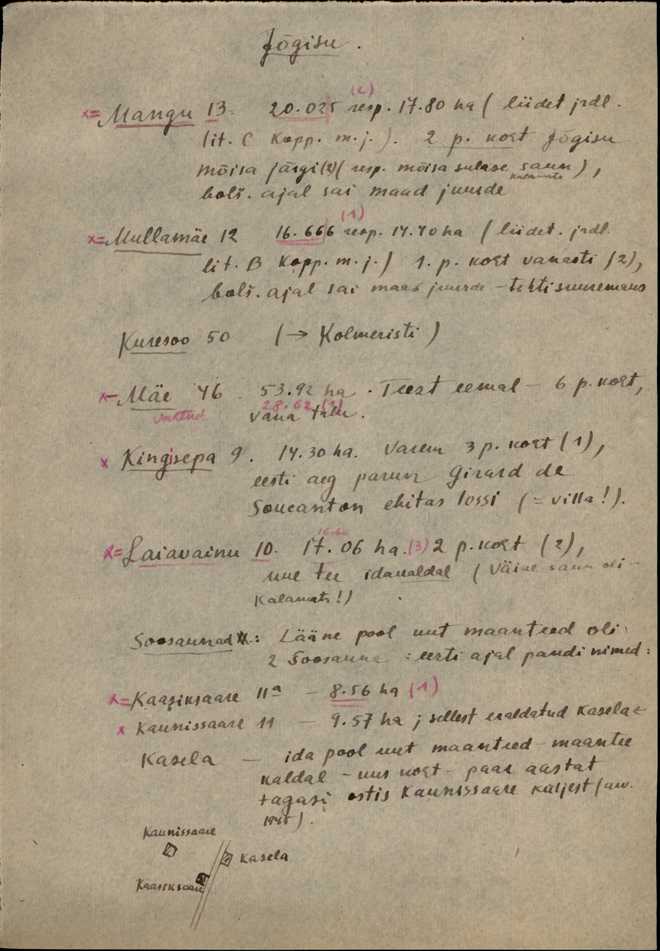 Jõgisu.
(2)
x= Mangu 13. 20.025 resp. 17.80 ha ( liidet jrdl.
lit. C Kopp. m. j. ). 2 p. koht Jõgisu
mõisa järgi (2) ( resp. mõisa sulase saun ),
bolš. ajal sai maad juurde
(1)
x= Mullamäe 12 16.666 resp. 14.40 ha ( liidet. jrdl.
lit. B Kopp. m. j. ) 1. p. koht vanasti (2),
bolš. ajal sai maad juurde - tehti suuremaks
Kuresoo 50 ( → Kolmeristi )
x- Mäe 46. 53.92 ha. Teest eemal - 6 p. koht,
28.62 (2)
vana talu.
x Kingisepa 9. 14.30 ha. Varem 3 p. koht (1),
eesti aeg parun Girard de
Soucanton ehitas lossi ( = villa! ).
x= Laiavainu 10. 17.06 ha. (3) 2 p. koht (2),
uue tee idakaldal ( Väike saun oli -
Kalamats! )
Soosaunad: Lääne pool uut maanteed oli
2 Soosauna : eesti ajal pandi nimed:
x= Kaasiksaare 11a - 8.56 ha (1)
x Kaunissaare 11 - 9.57 ha ; sellest eraldatud Kasela
Kasela - ida pool uut maanteed - maantee
kaldal - uus koht - paar aastat
tagasi ostis Kaunissaare küljest
Kaunissaare
Kasela
Kaasiksaare